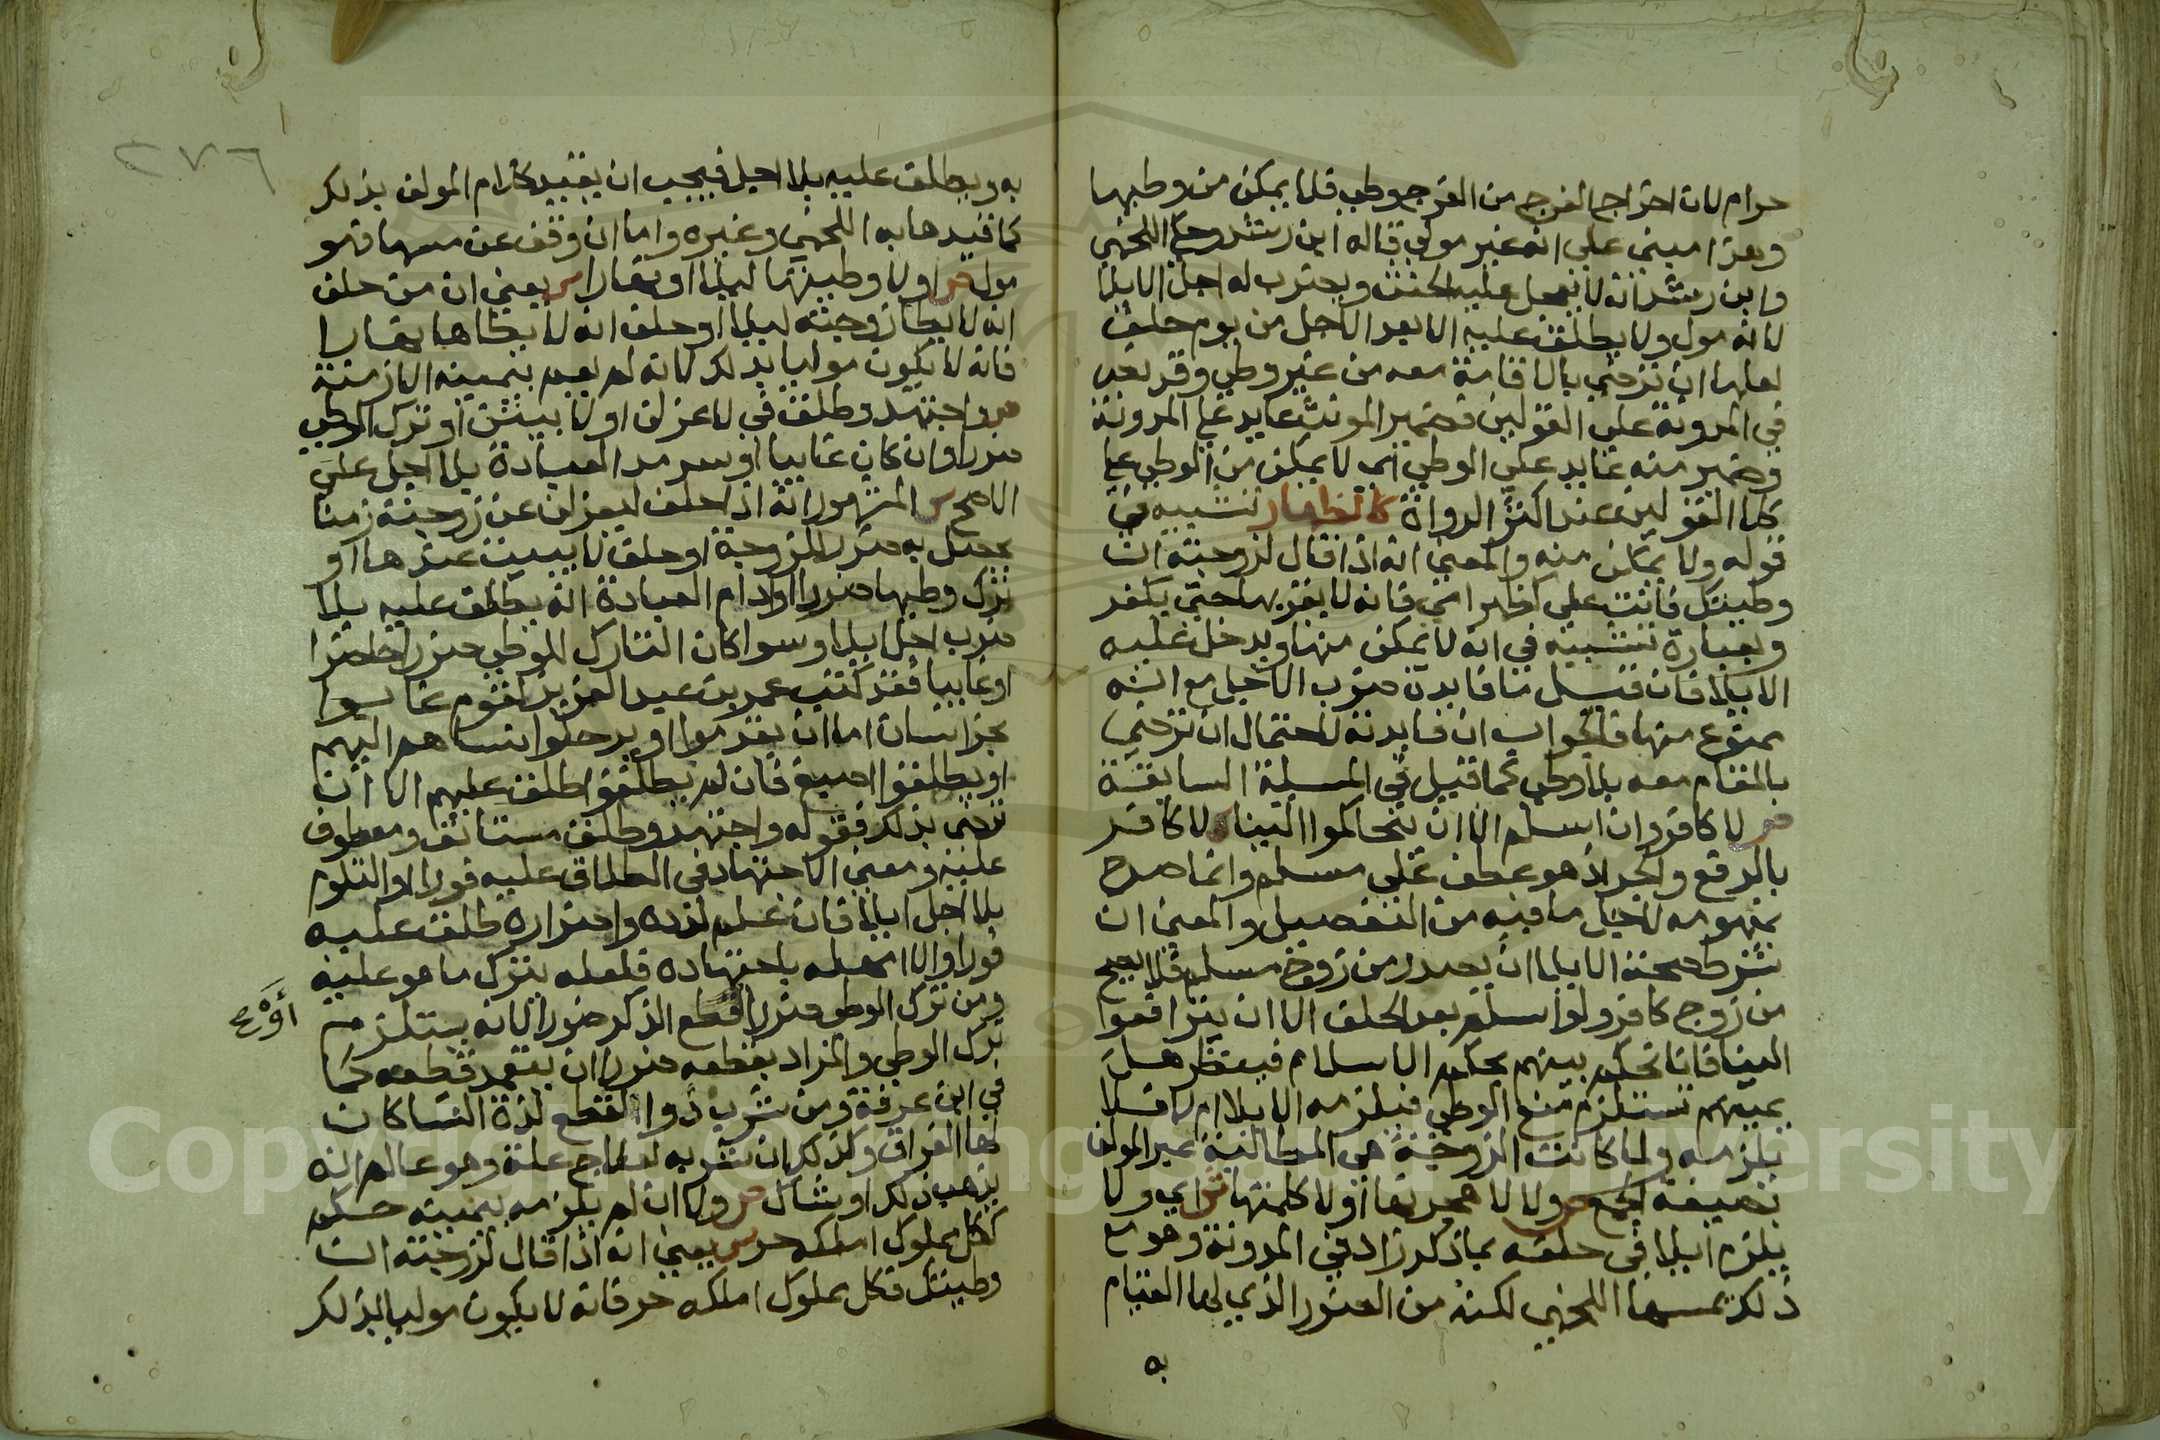 حرام لان اخراج الفرج من الفرج وطي فلا يمكن من وطيها
وهذا مبني على انه غير مول قاله ابن رشد وحكى اللخمي
وابن رشد انه لا يعجل عليه الحنث ويضرب له اجل الايلا
لانه مول ولا يطلق عليه الا بعد الاجل من يوم حلف
لعلها ان ترضي بالاقامة معه من غير وطي وقد
في المدونة على القولين فضمير المونث عايد على المدونة
وضمير منه عايد على الوطي اي لا يمكن من الوطي على
كلا القولين عند اكثر الرواة كالظهار تشبيه في
قوله ولا يمكن منه والمعني انه اذا قال لزوجته ان
وطيتك فانت علي كظهر امي فانه لا يقربها حتي يكفر
وبعبارة تشبيه في انه لا يمكن منها ويدخل عليه
الايلا فان قيل ما فايدة ضرب الاجل مع انه
ممنوع منها فالجواب ان فايدته لاحتمال ان ترضي
بالمقام معه بلا وطي كما قيل في المسيلة السابقة
ص لا كافر وان اسلم الا ان يتحاكموا الينا ش لا كافر
بالرفع والجر اذ هو عطف على مسلم وانما صرح
بمفهومه لاجل ما فيه من التفصيل والمعني ان
شرط صحة الايلا ان يصدر من زوج مسلم فلا يصح
من زوج كافر ولو اسلم بعد الحلف الا ان يترافعوا
الينا فانا نحكم بينهم بحكم الاسلام فينظر هل
يمينهم تستلزم منع الوطي فيلزمه الايلا ام لا فلا
يلزمه ولما كانت الزوجة هي المطالبة عبر المولف
بصيغة الجمع ص ولا لا هجرنها او لا كلمتها ش اي ولا
يلزم ايلا في حلفه بما ذكر زاد في المدونة وهو مع
ذلك يمسها اللخمي لكنه من الضرر الذي لها القيام
به
٢٧٦
به ويطلق عليه بلا اجل فيجب ان يقيد كلام المولف بذلك
كما قيدها به اللخمي وغيره واما ان وقف عن مسها فهو
مول ص او لا وطيتها ليلا او نهارا ش يعني ان من حلف
انه لا يطا زوجته ليلا او حلف انه لا يطاها نهارا
فانه لا يكون موليا بذلك لانه لم يعم بيمينه الازمنة
ص واجتهد وطلق في لاعزلن او لا بيتن او ترك الوطي
ضررا وان كان غايبا او سرمد العبادة بلا اجل على
الاصح ش المشهور انه اذا حلف ليعزلن عن زوجته زمنا
يحصل به ضرر الزوجة او حلف لا يبيت عندها او
ترك وطيها ضررا او ادام العبادة انه يطلق عليه بلا
ضرب اجل ايلا وسوا كان التارك للوطي ضررا حاضرا
او غايبا فقد كتب عمر بن عبد العزيز لقوم غابوا
بخراسان اما ان يقدموا او يرحلوا نساهم اليهم
او يطلقوا اصبغ فان لم يطلقوا طلق عليهم الا ان
ترضى بذلك فقوله واجتهد وطلق مستانف ومعطوف
عليه ومعني الاجتهاد في الطلاق عليه فورا او التلوم
بلا اجل ايلا فان علم لدده واضراره طلق عليه
فورا والا امهله باجتهاده فلعله يترك ما هو عليه
ومن ترك الوطى ضررا قطع الذكر ضررا لانه يستلزم
ترك الوطي والمراد بقطعه ضررا ان يتعمد قطعه كما
في ابن عرفة ومن شرب دوا لقطع لذة النسا كان
لها الفراق وكذلك ان شربه لعلاج علة وهو عالم انه
يذهب ذلك او شاك ص ولا ان لم يلزمه بيمينه حكم
ككل مملوك املكه حر ش يعني انه اذا قال لزوجته ان
وطيتك فكل مملوك املكه حر فانه لا يكون موليا بذلك